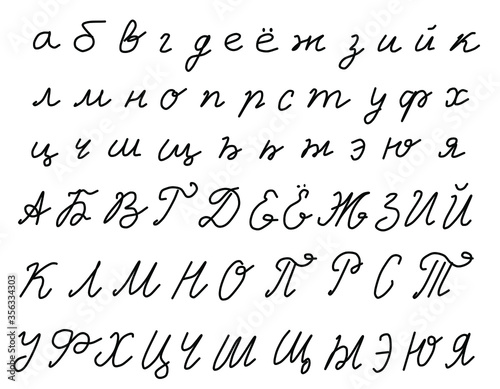 а б в г д е ё ж з и й к
л м н о п р с т у ф х
ц ч ш щ ъ ь ы э ю я
А Б В Г Д Е Ё Ж З И Й
К Л М Н О П Р С Т
У Ф Х Ц Ч Ш Щ Ы Э Ю Я
Adobe Stock | #356334303